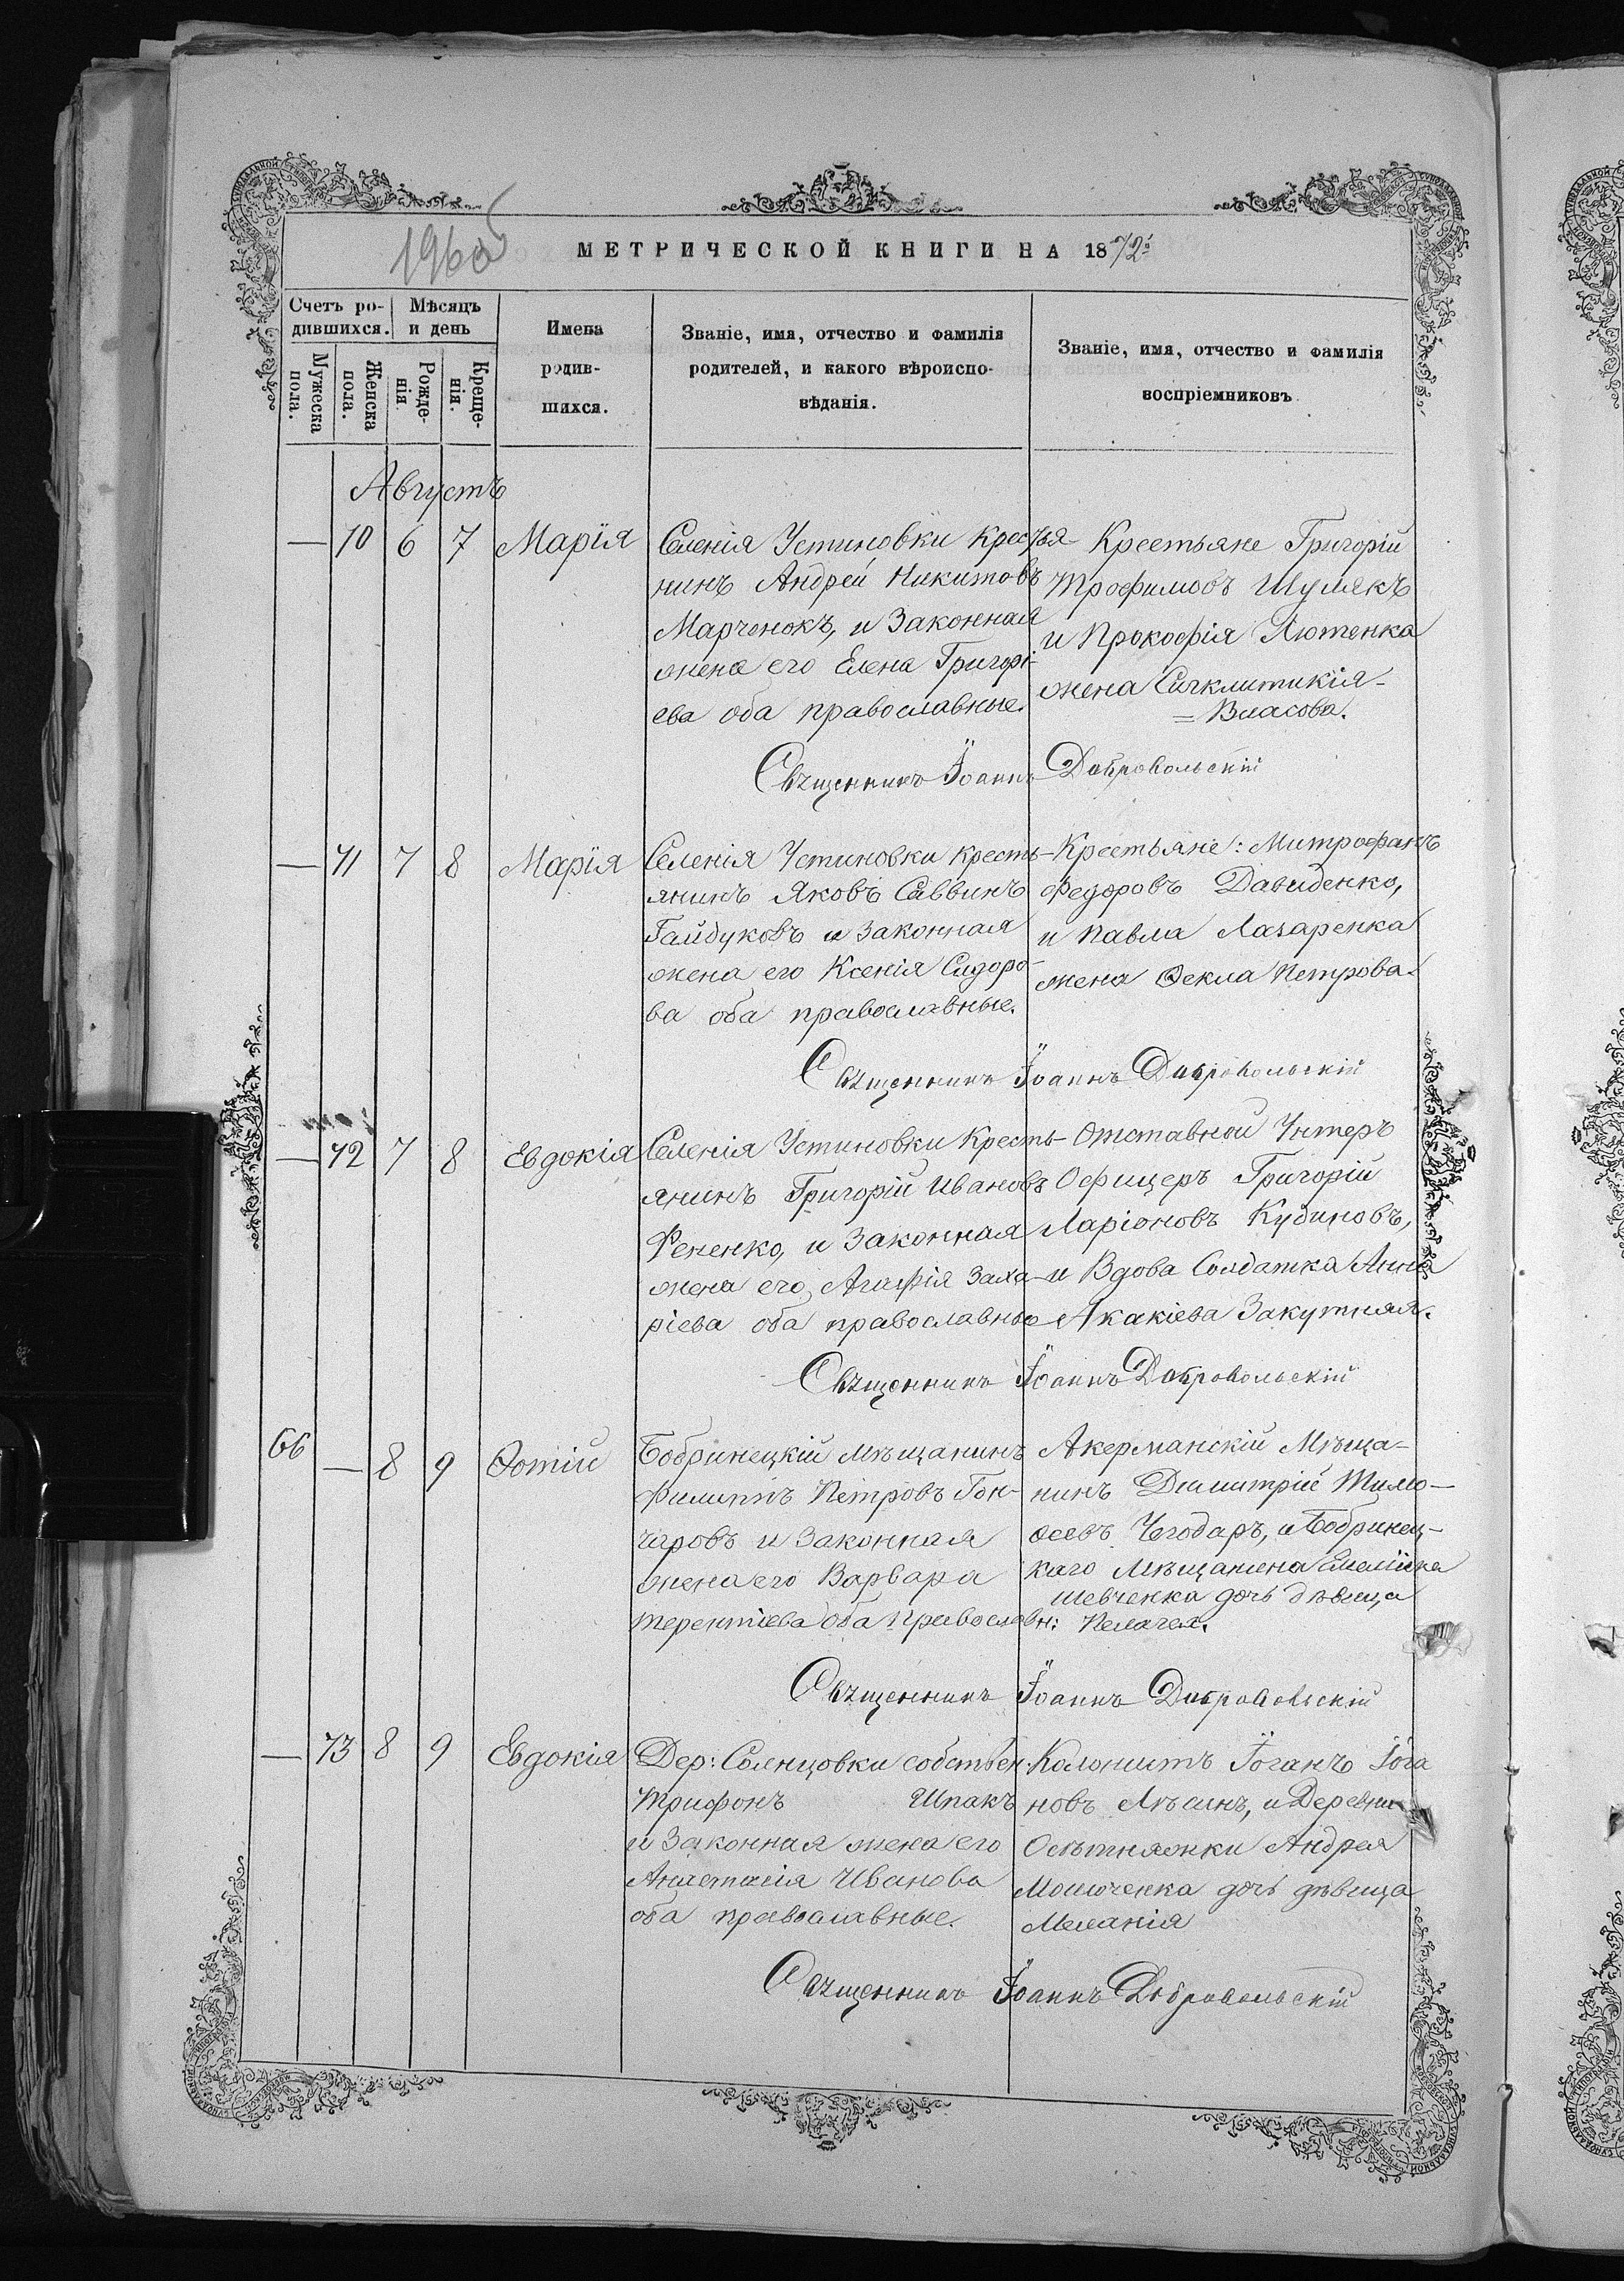 1960
МЕТРИЧЕСКОЙ КНИГИ НА 1872:
Счетъ ро-
дившихся.
Мѣсяцъ
и день
Мужеска
пола.
Женска
пола.
Рожде-
нія.
Креще-
нія.
Имена
родив-
шихся.
Званіе, имя, отчество и фамилія
родителей, и какого вѣроиспо-
вѣданія.
Званіе, имя, отчество и фамилія
воспріемниковъ
Августъ
— 70 6 7 Марія
Селенія Устиновки Крестья-
нинъ Андрей Никитовъ
Марченокъ, и Законная
жена его Елена Григорі-
ева оба православные.
Крестьяне Григорій
Трофимовъ Шулякъ
и Прокофія Лютенка
жена Сигклитикія-
= Власова.
Священникъ Іоаннъ Добровольскій
— 71 7 8 Марія
Селенія Устиновки Кресть-
янинъ Яковъ Саввинъ
Гайдуковъ и Законная
жена его Ксенія Сидоро-
ва оба православные.
Крестьяне: Митрофанъ
Федоровъ Давиденко,
и Павла Лазаренка
жена Ѳекла Петрова.
Священникъ Іоаннъ Добровольскій
— 72 7 8 Евдокія
Селенія Устиновки Кресть-
янинъ Григорій Ивановъ
Фененко, и Законная
жена его, Агафія Заха-
ріева оба православные
Отставной Унтеръ
Офицеръ Григорій
Ларіоновъ Кудиновъ,
и Вдова Солдатка Анна
Акакіева Закутняя.
Священникъ Іоаннъ Добровольскій
66 — 8 9 Ѳотій
Бобринецкій мѣщанинъ
Филиппъ Петровъ Гон-
чаровъ и Законная
жена его Варвара
Терентіева оба Православн:
Акерманскій Мѣща-
нинъ Димитрій Тимо-
ѳеевъ Чегодаръ, и Бобринец-
каго Мѣщанина
Шевченка дочь дѣвица
Пелагея.
Священникъ Іоаннъ Добровольскій
— 73 8 9 Евдокія
Дер: Солнцовки собствен:
Трифонъ Шпакъ
и Законная жена его
Анастасія Иванова
оба православные.
Колонистъ Іоганъ Іога
новъ и Деревни
Осѣтняжки Андрея
дочь дѣвица
Меланія
Священникъ Іоаннъ Добровольскій